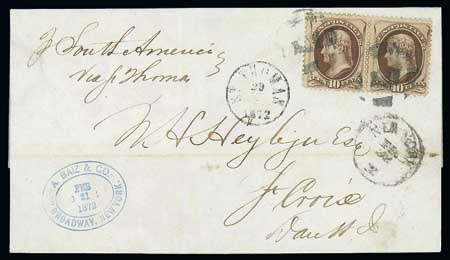 pr South America
Via St Thomas
ST. THOMAS
29
1872
10 10
W H Heyliger Esq
St Croix
Dan W. I
NEW YORK
FEB
A. BAIZ & CO.
FEB
21
1872
BROADWAY, NEW YORK